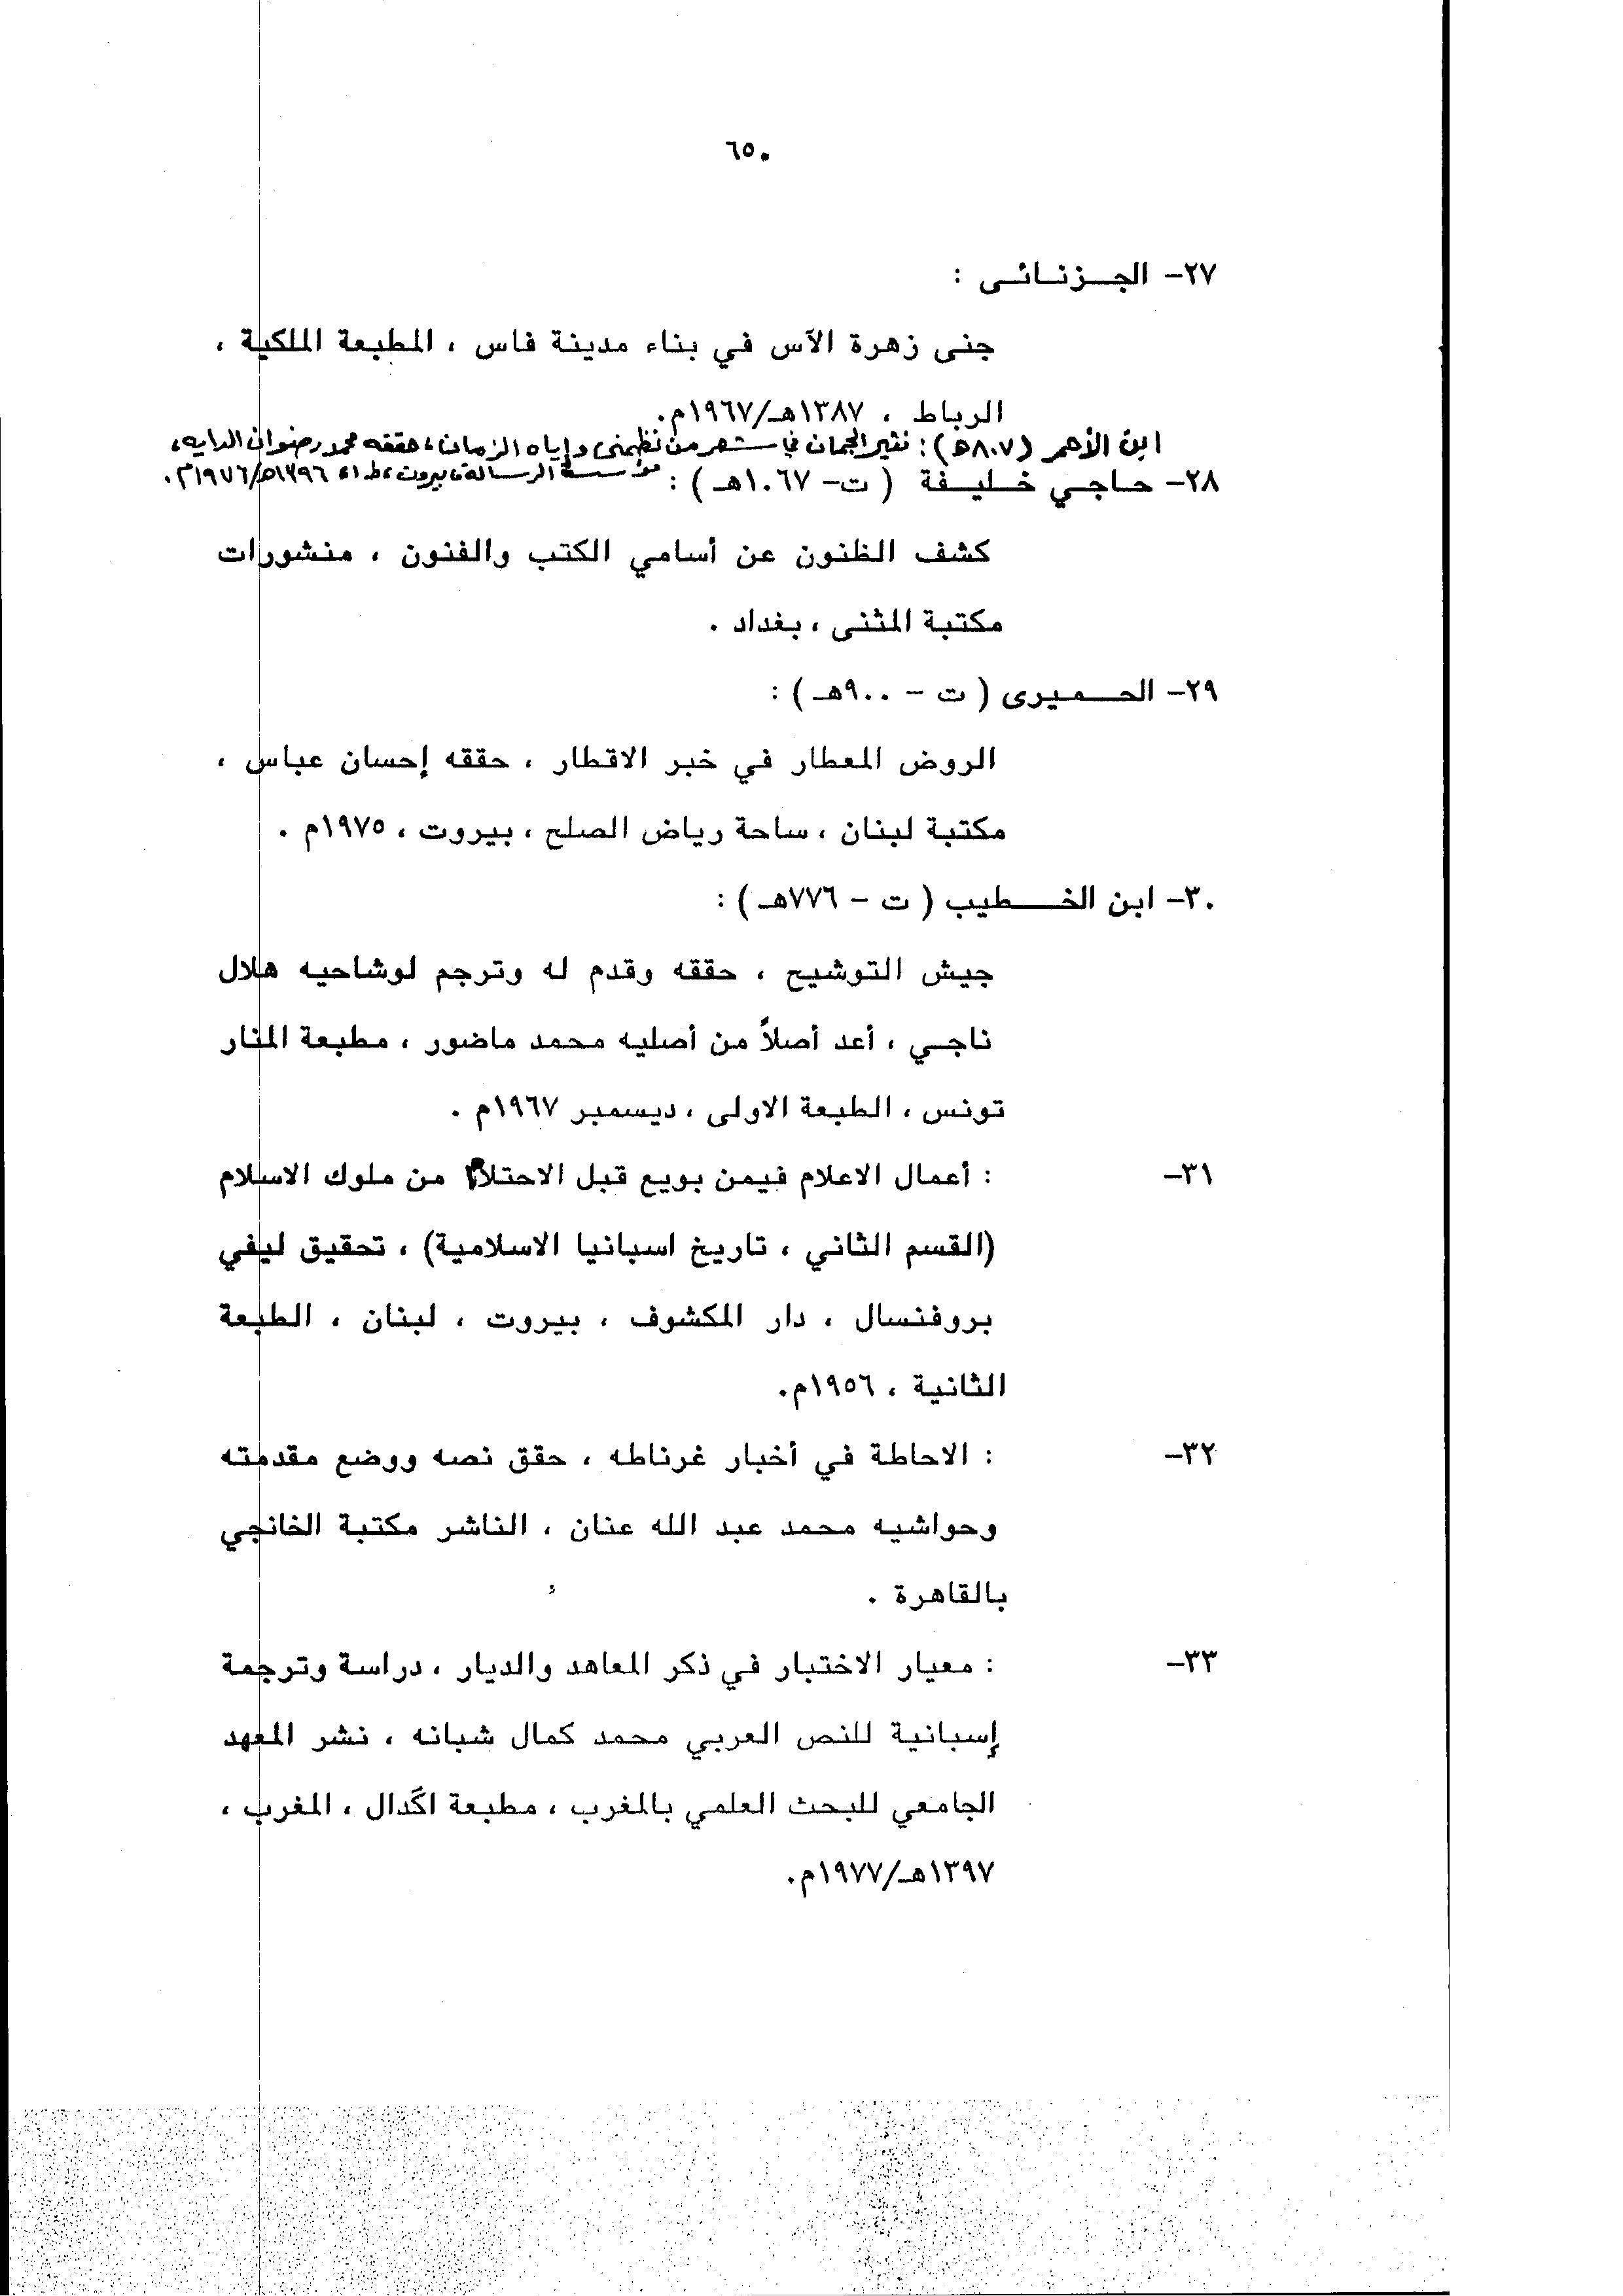 ٦٥٠
٢٧- الجزنائى :
جنى زهرة الآس في بناء مدينة فاس ، المطبعة الملكية ،
الرباط ، ١٣٨٧هـ/١٩٦٧م.
ابن الأحمر (٨٠٧هـ) : نثير الجمان في شعر من نظمني وإياه الزمان ، حققه محمد رضوان الدايه ،
مؤسسة الرسالة ، بيروت ، ط ١ ، ١٣٩٦هـ/١٩٧٦م.
٢٨- حاجي خليفة ( ت- ١٠٦٧هـ ) :
كشف الظنون عن أسامي الكتب والفنون ، منشورات
مكتبة المثنى ، بغداد .
٢٩- الحميرى ( ت - ٩٠٠هـ ) :
الروض المعطار في خبر الاقطار ، حققه إحسان عباس ،
مكتبة لبنان ، ساحة رياض الصلح ، بيروت ، ١٩٧٥م .
٣٠- ابن الخطيب ( ت - ٧٧٦هـ ) :
جيش التوشيح ، حققه وقدم له وترجم لوشاحيه هلال
ناجي ، أعد أصلاً من أصليه محمد ماضور ، مطبعة المنار
تونس ، الطبعة الاولى ، ديسمبر ١٩٦٧م .
٣١- : أعمال الاعلام فيمن بويع قبل الاحتلام من ملوك الاسلام
(القسم الثاني ، تاريخ اسبانيا الاسلامية) ، تحقيق ليفي
بروفنسال ، دار المكشوف ، بيروت ، لبنان ، الطبعة
الثانية ، ١٩٥٦م.
٣٢- : الاحاطة في أخبار غرناطه ، حقق نصه ووضع مقدمته
وحواشيه محمد عبد الله عنان ، الناشر مكتبة الخانجي
بالقاهرة .
٣٣- : معيار الاختبار في ذكر المعاهد والديار ، دراسة وترجمة
إسبانية للنص العربي محمد كمال شبانه ، نشر المعهد
الجامعي للبحث العلمي بالمغرب ، مطبعة اگدال ، المغرب ،
١٣٩٧هـ/١٩٧٧م.